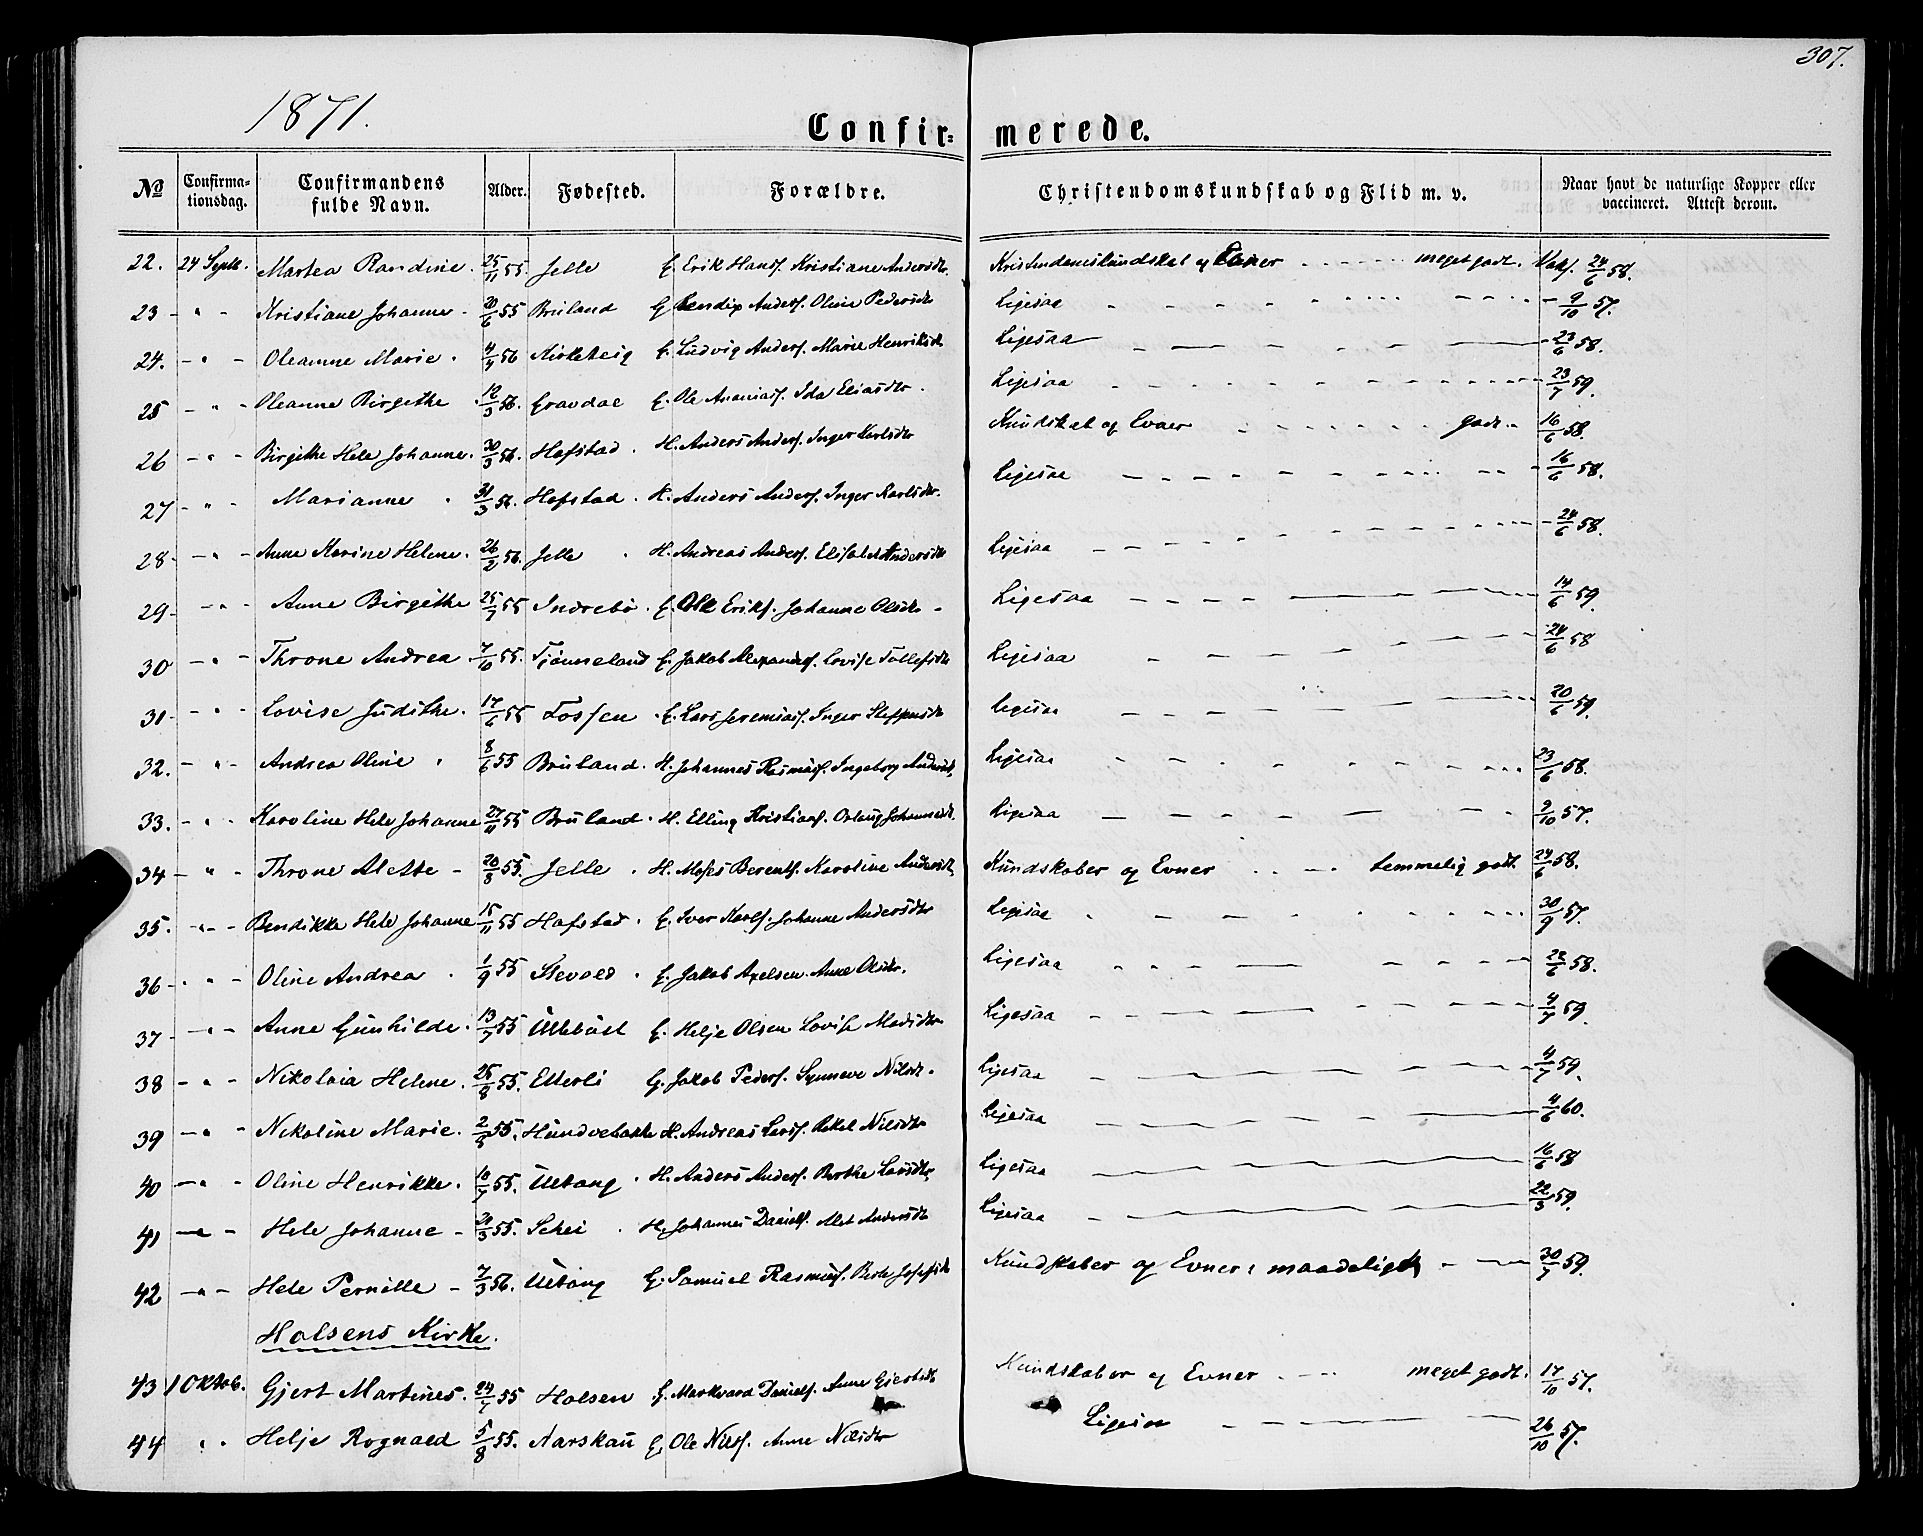 307.
1871.
Confir- merede.
No Confirmationsdag. Confirmandens fulde Navn. Alder. Fødested. Forældre. Christendomskundskab og Flid m. v. Naar havt de naturlige Kopper eller vaccineret. Attest derom.
22. 24 Septb. Martea Randine. 25/11 55. Jelle G. Erik Hans. Kristiane Andersdtr. Kristendomskundskab og Evner - - - meget godt. Vaks. 24/6 58.
23 - " - Kristiane Johanne - 20/6 55 Bruland G Bendix Anders. Oline Pedersdtr Ligesaa - - - 9/10 57.
24. - " - Oleanne Marie. 4/4 56 Kirketeig G. Ludvig Anders. Marie Henriksdtr Ligesaa - - - 23/6 58.
25 - " - Oleanne Birgethe. 12/3 56. Gravdal G. Ole Ananias. Ida Eliasdtr. Ligesaa - - - 23/7 59.
26 - " - Birgithe Hele Johanne. 30/3 56. Hafstad. H. Anders Anders. Inger Karlsdtr Kundskab og Evner - - - godt. 16/6 58.
27 - " - Marianne. 31/3 56. Hafstad. H. Anders Anders. Inger Karlsdtr. Ligesaa - - - 16/6 58.
28 - " - Anne Karine Helene. 26/2 56. Jelle. H. Andreas Anders. Elisabet Andersdtr Ligesaa - - - 24/6 58.
29 - " - Anne Birgithe 25/7 55 Indrebö. G. Ole Eriks. Johanne Olsdtr - Ligesaa - - - 14/6 59.
30 - " - Throne Andrea. 7/10 55. Tjönneland G. Jakob Alexanders. Lovise Tollefsdtr Ligesaa - - - 24/6 58
31 - " - Lovise Judithe. 17/6 55 Fossen. G. Lars Jeremias. Inger Steffensdtr Ligesaa - - - 20/6 59.
32. - " - Andrea Oline. 8/6 55 Bruland. H. Johannes Rasmus. Ingeborg Andersdt. Ligesaa - - - 23/6 58.
33. - " - Karoline Hele Johanne 27/11 55 Bruland. H. Elling Kristians. Orlaug Johannesdt. Ligesaa - - - 9/10 57.
34 - " - Throne Alette - 20/8 55. Jelle. H. Moses Berents. Karoline Andersdtr Kundskaber og Evner - - - temmelig godt. 24/6 58.
35. - " - Bendikke Hele Johanne 15/11 55 Hafstad. G. Iver Karls. Johanne Andersdtr Ligesaa - - - 30/9 57.
36 - " - Oline Andrea. 1/9 55 Slevold. G. Jakob Axelsen. Anne Olsdtr. Ligesaa - - - 22/6 58.
37 - " - Anne Gunhilde. 13/7 55 G. Helje Olsen Lovise Madsdtr Ligesaa - - - 4/7 59.
38 - " - Nikolaia Helene. 25/8 55. Etterli G. Jakob Peders. Synneve Nilsdtr. Ligesaa - - - 4/7 59.
39 - " - Nikoline Marie. 2/5 55. Hundvebakke H. Andreas Lars. Rakel Nilsdtr Ligesaa - - - 4/6 60.
40 - " - Oline Henrikke. 10/7 55. Ultang. H. Anders Anders. Berthe Larsdtr. Ligesaa - - - 16/6 58
41 - " - Hele Johanne - 20/3 55. Schei. H. Johannes Daniels. Alet Andersdtr Ligesaa - - - 22/3 59.
42 - " - Hele Pernille - 7/3 56. Ultang G. Samuel Rasmus. Berte Josefsdtr Kundskaber og Evner: maadeligt - - - 30/7 59.
Holsens Kirke.
43 1 Oktob. Gjert Martinus. 24/7 55 Holsen G. Markvard Daniels. Anne Gjertsdtr Kundskaber og Evner - - - meget godt. 17/10 57.
44 " " Helje Rognald 5/8 55. Aarskau G. Ole Nils. Anne Nilsdtr Ligesaa - - - 26/10 57.